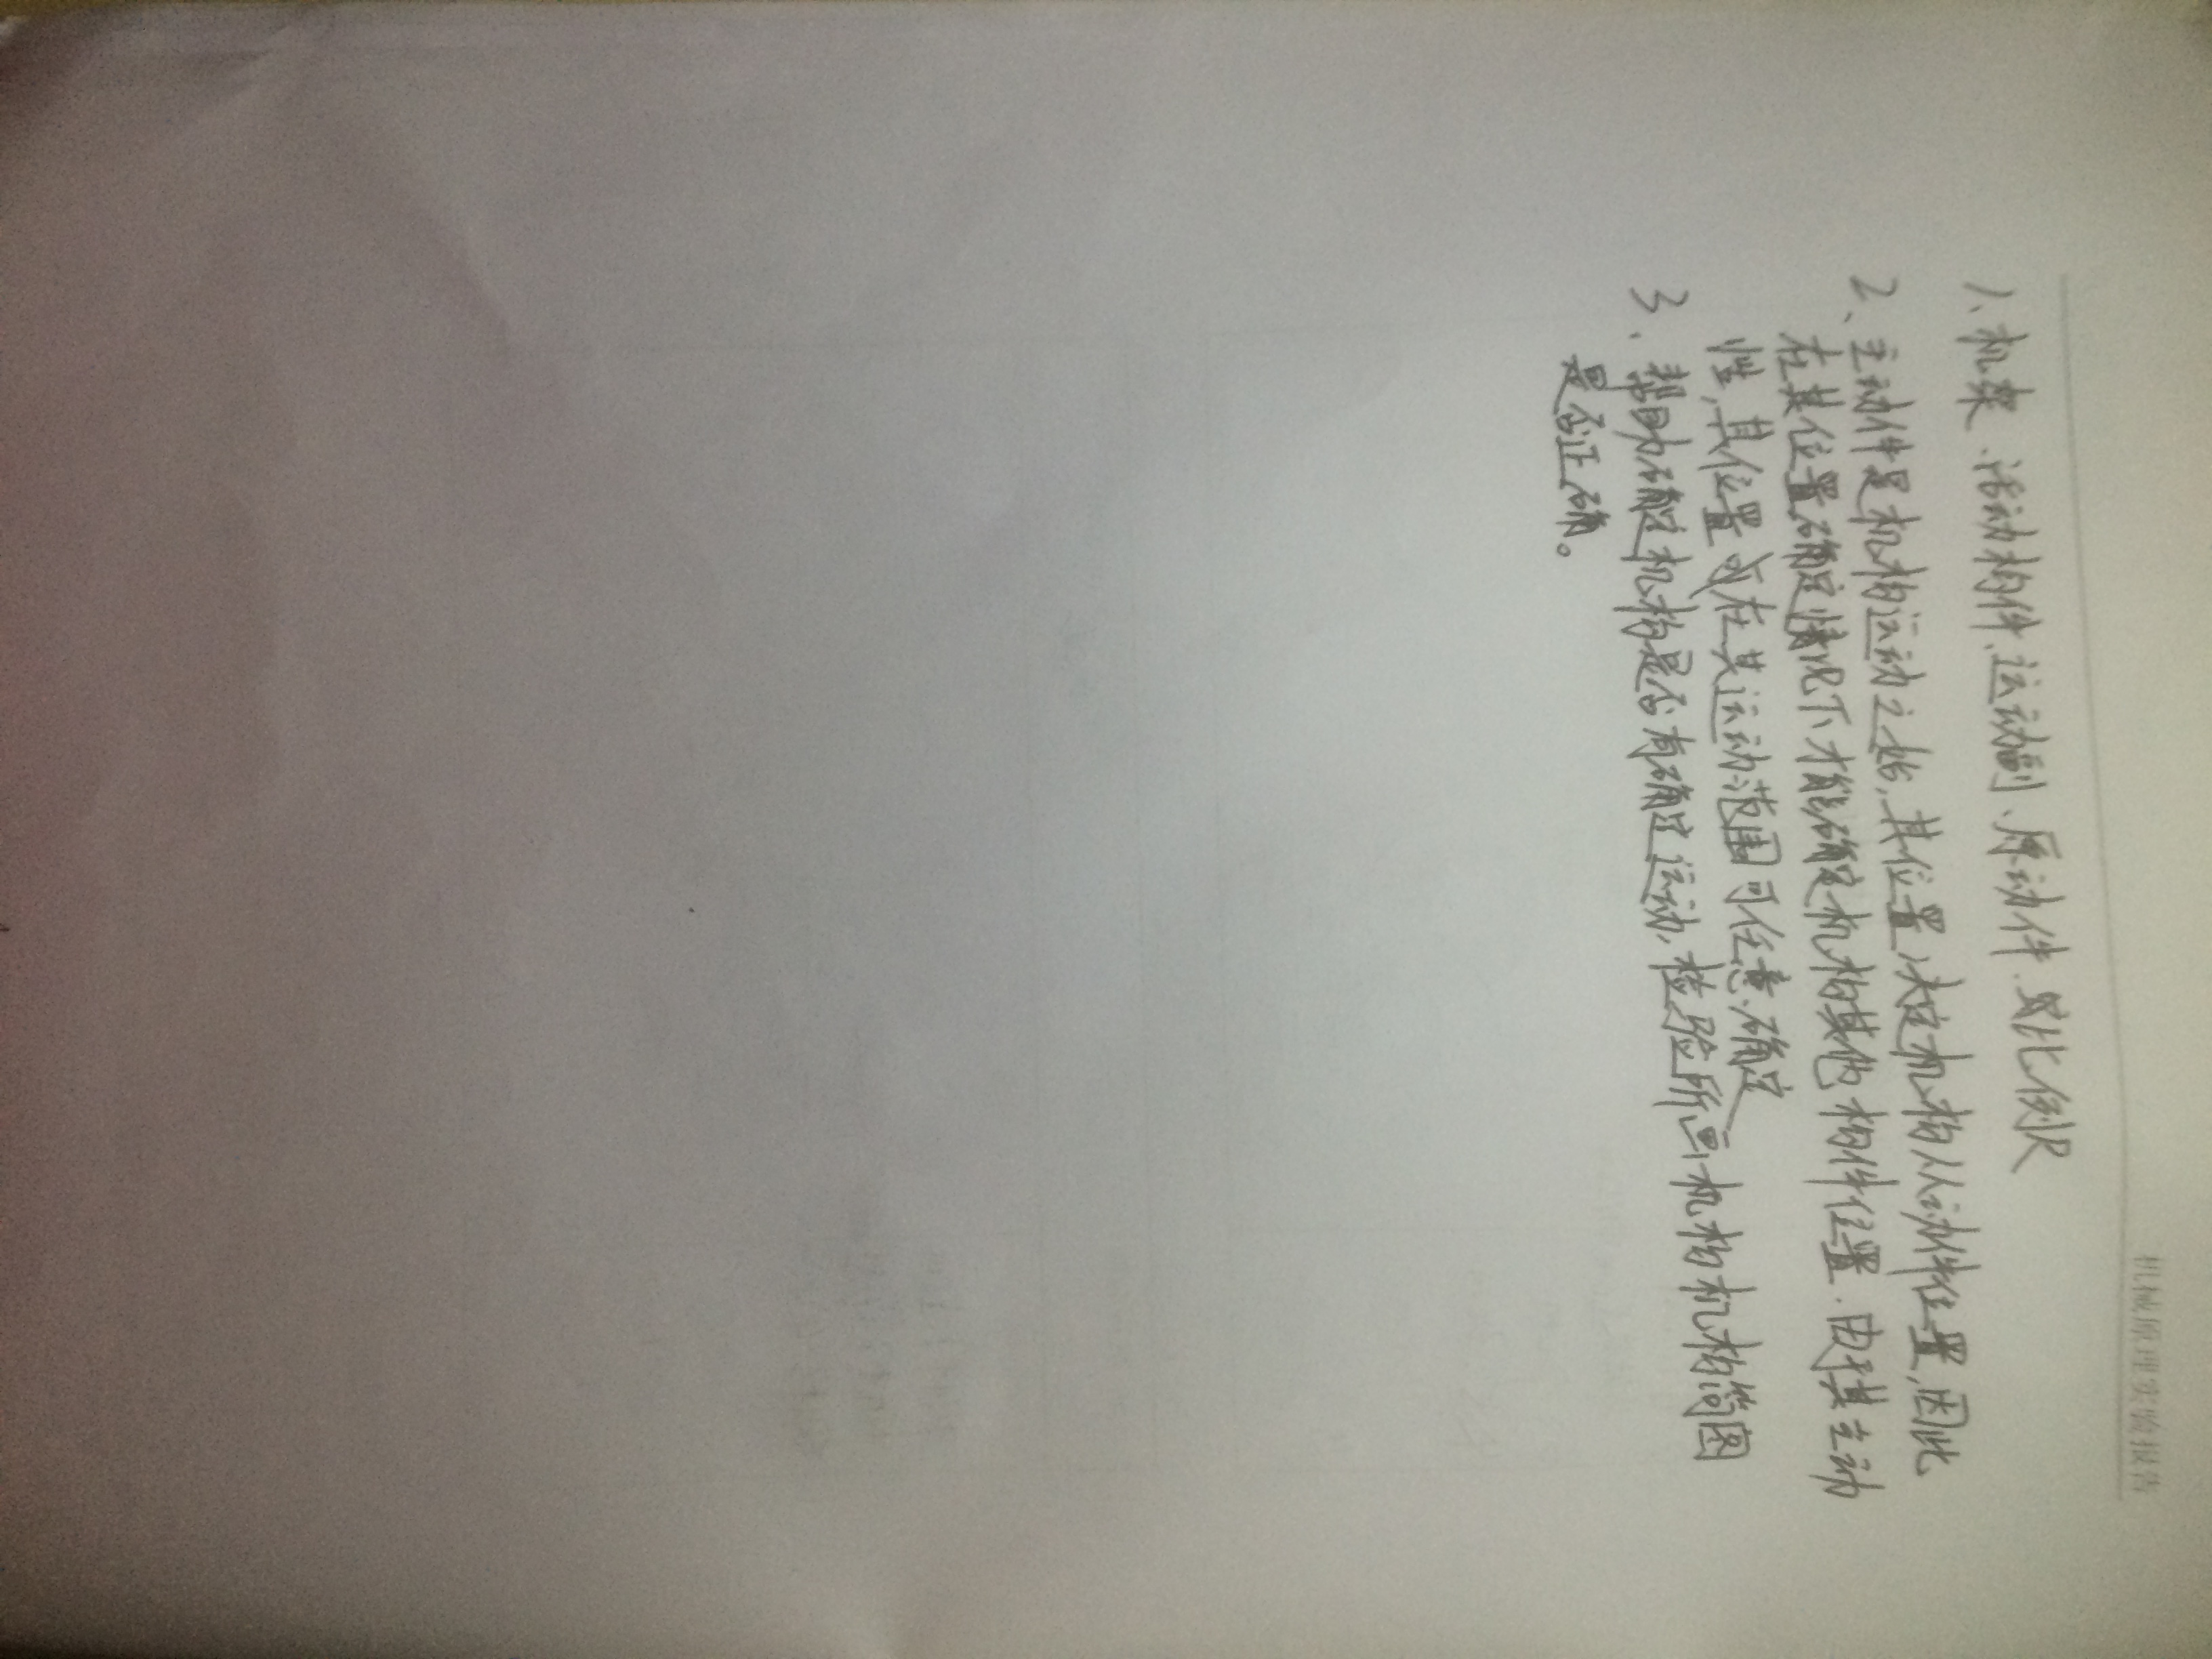 机械原理实验报告
1、机架、活动构件、运动副、原动件、比例尺
2、主动件是机构运动之始,其位置决定机构从动件位置,因此
在其位置确定情况下才能确定机构其他构件位置.由于其主动
性,其位置可在其运动范围可任意确定
3、帮助确定机构是否有确定运动,检验所画机构机构简图
是否正确。